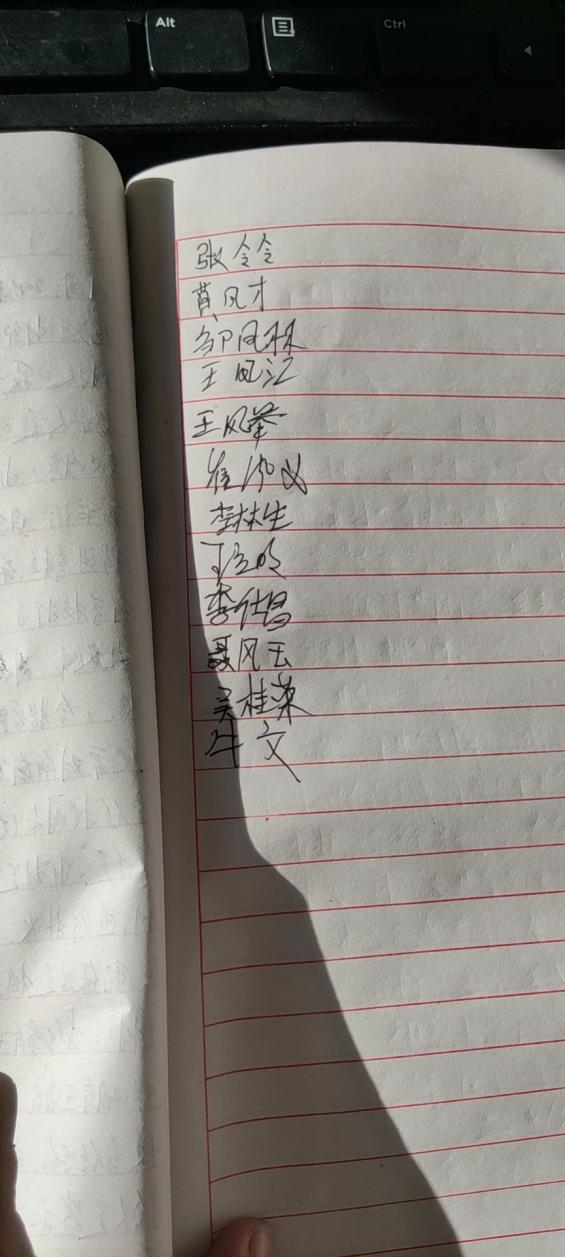 Alt
Ctrl
张令令
黄凤才
邹凤林
王凤江
王凤举
崔洪义
李林生
李仕昌
聂风玉
吴桂荣
牛文